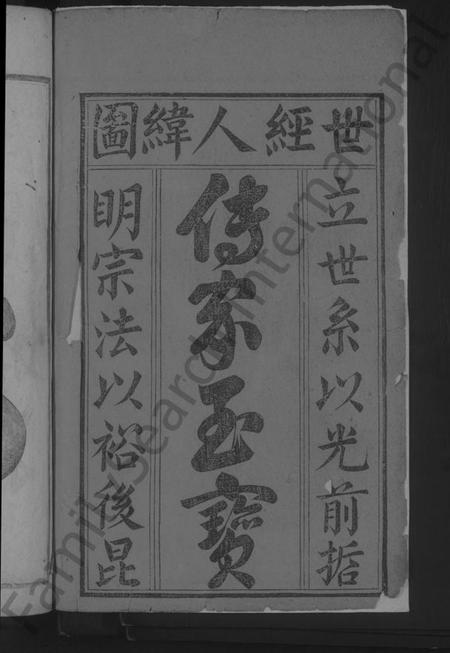 世經人緯圖
立世系以光前哲
傳家玉寶
明宗法以裕後昆
FamilySearch International